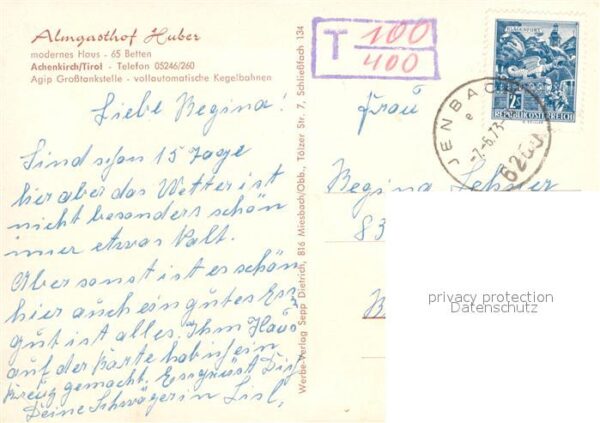 Almgasthof Huber
modernes Haus - 65 Betten
Achenkirch/Tirol - Telefon 05246/260
Agip Großtankstelle - vollautomatische Kegelbahnen
Liebe Regina!
Sind schon 15 Tage
hier aber das Wetter ist
nicht besonders schön
imer etwas kalt.
Aber sonst ist es schön
hier auch ein gutes Essen
gut ist alles. Ihm Haus
auf der Karte hab ich ein
Kreuz gemacht. Es grüsst Dich
Deine Schwägerin Lisl,
Werbe-Verlag Sepp Dietrich, 816 Miesbach/Obb., Tölzer Str. 7, Schließfach 134
T 100
400
KLAGENFURT
S 2
REPUBLIK ÖSTERREICH
JENBACH
e
-7.-6.73-
6200
Frau
Regina Lehner
83
privacy protection
Datenschutz